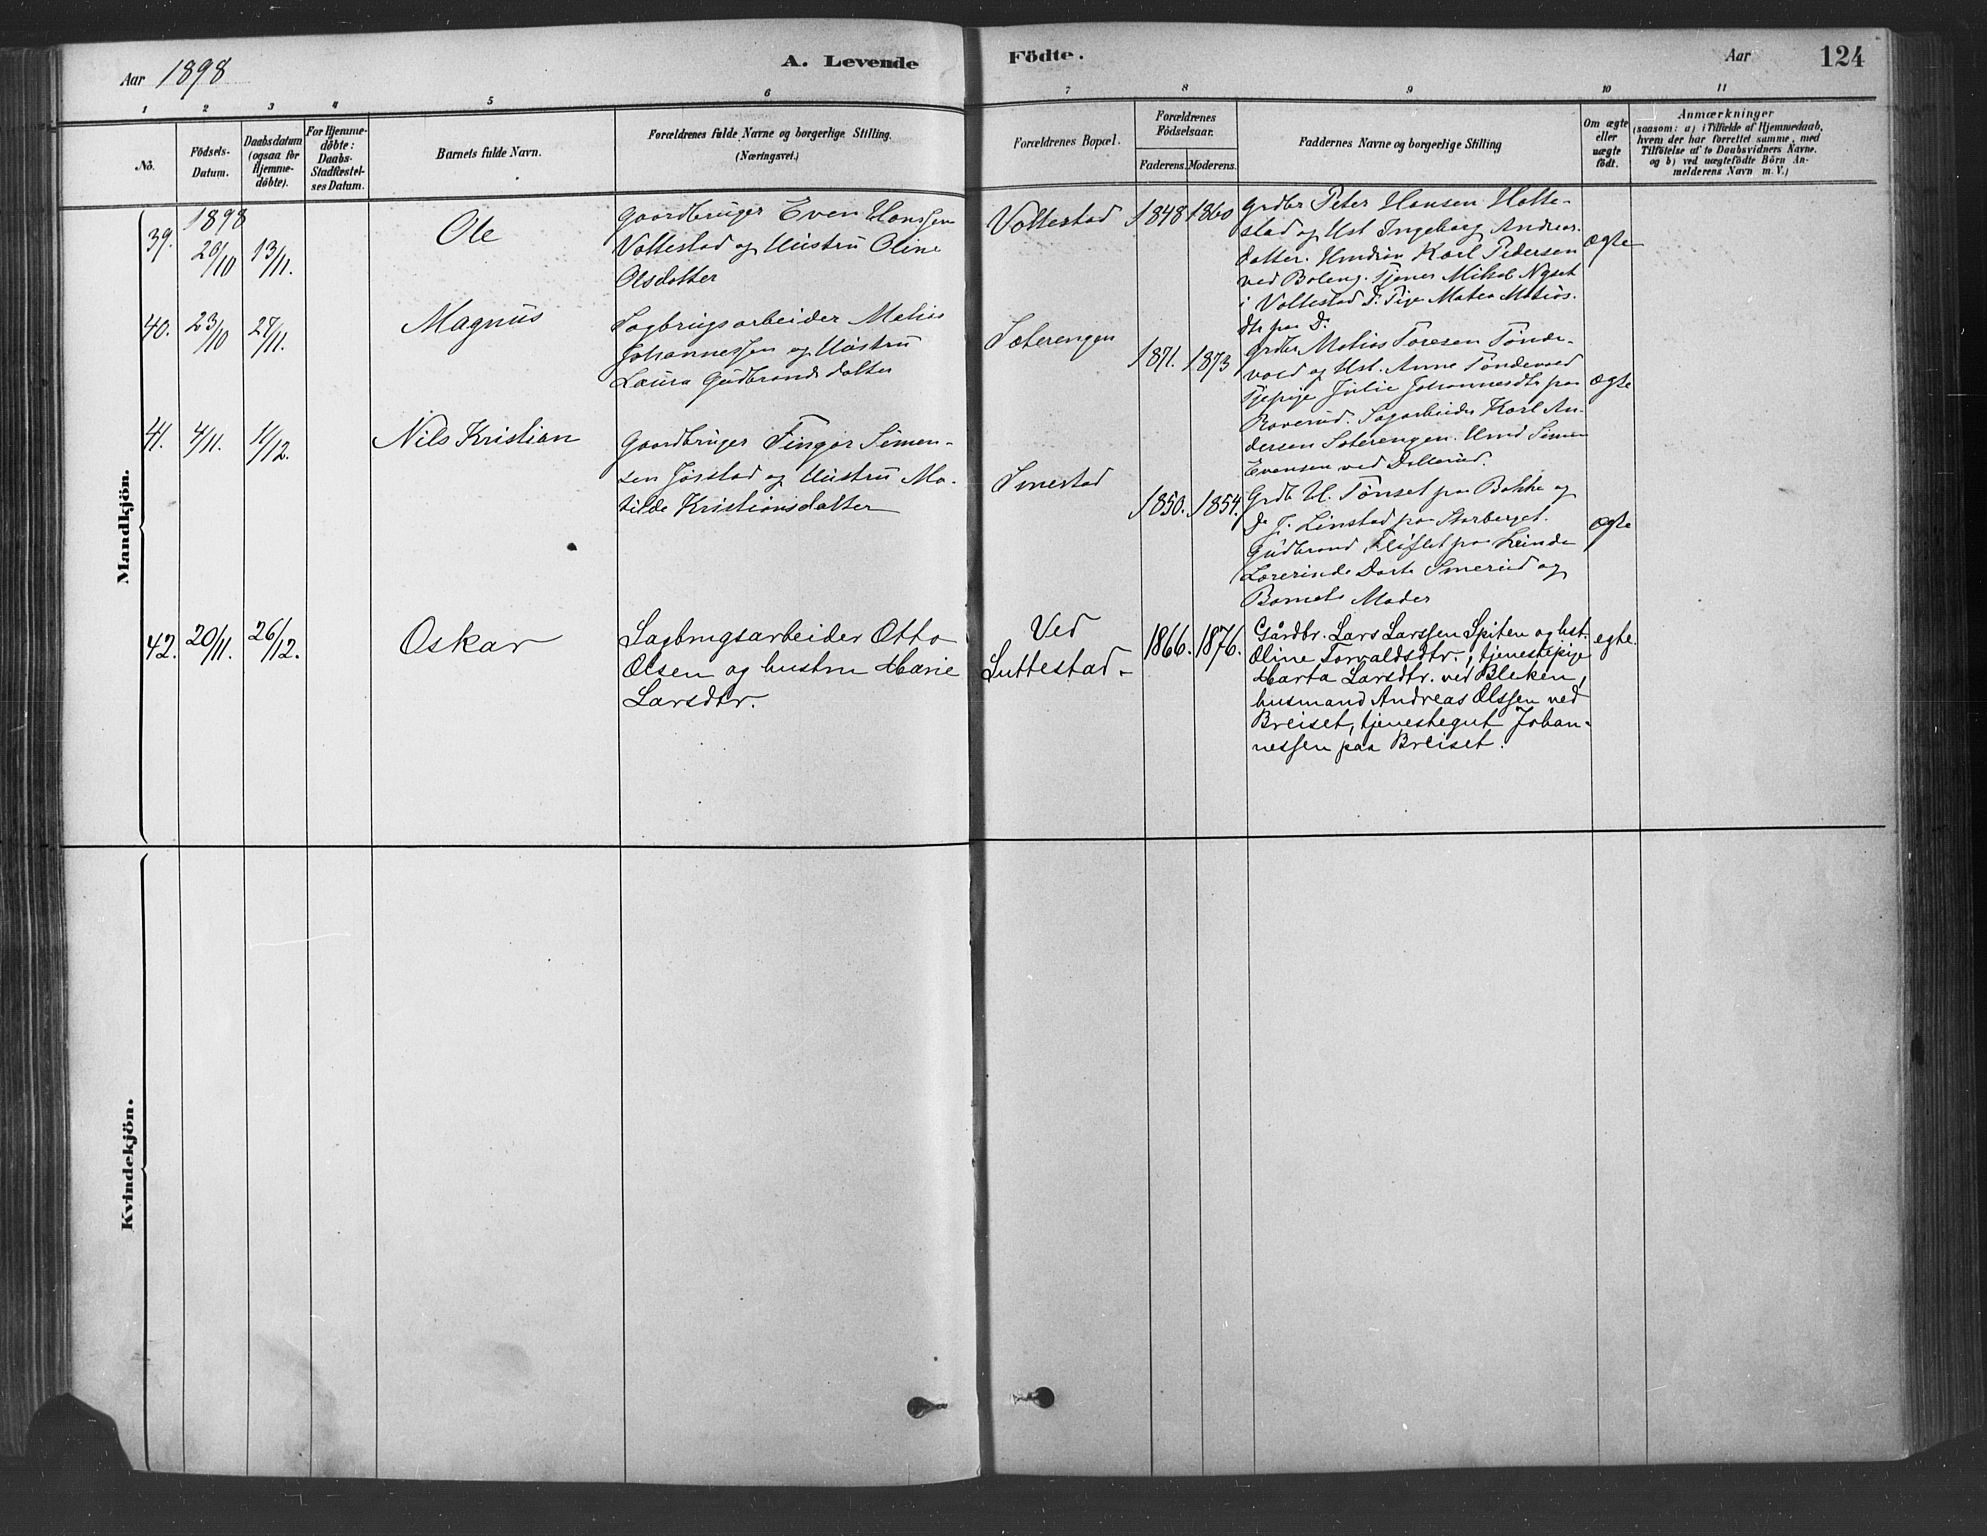 Aar 1898
A. Levende
Födte.
Aar
124
1
2
3
4
5
6
7
8
9
10
11
No.
Födsels-
Datum.
Daabsdatum
(ogsaa for
Hjemme-
døbte).
For Hjemme-
døbte:
Daabs-
Stadfæstel-
ses Datum.
Barnets fulde Navn.
Forældrenes fulde Navne og borgerlige Stilling.
(Næringsvei.)
Forældrenes Bopæl.
Forældrenes
Födselsaar.
Faderens.
Moderens.
Faddernes Navne og borgerlige Stilling
Om ægte
eller
uægte
födt.
Anmærkninger
(saasom: a) i Tilfælde af Hjemmedaab,
hvem der har forrettet samme, med
Tilföielse af to Daabsvidners Navne.
og b) ved uægtefödte Börn An-
melderens Navn m. V.)
Mandkjön.
39.
1898
20/10
13/11.
Ole
Gaardbruger Even Hanssen
Vollestad og Hustru Oline
Olsdatter
Vollestad
1848
1860
Grdbr Peter Hansen Holte-
stad og Hst Ingeborg Andreas
datter. Karl Pedersen
ved Boleng. Tjener Mikal Nyset
i Vollestad D. Pige Matea Matias
dtr paa D.
ægte
40.
23/10
27/11.
Magnus
Sagbrugsarbeider Matias
Johannessen og Hustru
Laura Gudbrandsdatter
Sæterengen
1871.
1873
Grdbr Matias Toresen Tønde-
vold og Hst. Anne Tøndevold
Tjepige Julie Johannesdtr paa
Roverud. Sagarbeider Karl An-
dersen Sæterengen. Hmd Simen
Evensen ved Dællerud.
ægte
41.
4/11.
11/12.
Nils Kristian
Gaardbruger Fingar Simen-
sen Jørstad og Hustru Ma-
tilde Kristiansdatter
Smestad
1850.
1854.
Grdb H. Tønset paa Bakke og
D. J. Linstad paa Storberget.
Gudbrand paa Leinde
Lærerinde Dorte Smerud og
Barnets Moder
ægte
42.
20/11.
26/12.
Oskar
Sagbrugsarbeider Otto
Olsen og hustru Marie
Larsdtr.
Ved
Luttestad
1866.
1876.
Gårdbr. Lars Larssen Spiten og hst.
Oline Torvaldsdtr., tjenestepige
Marta Larsdtr. ved Bleken,
husmand Andreas Olssen ved
Breiset, tjenestegut Johan-
nessen paa Breiset.
egte.
Kvindekjön.